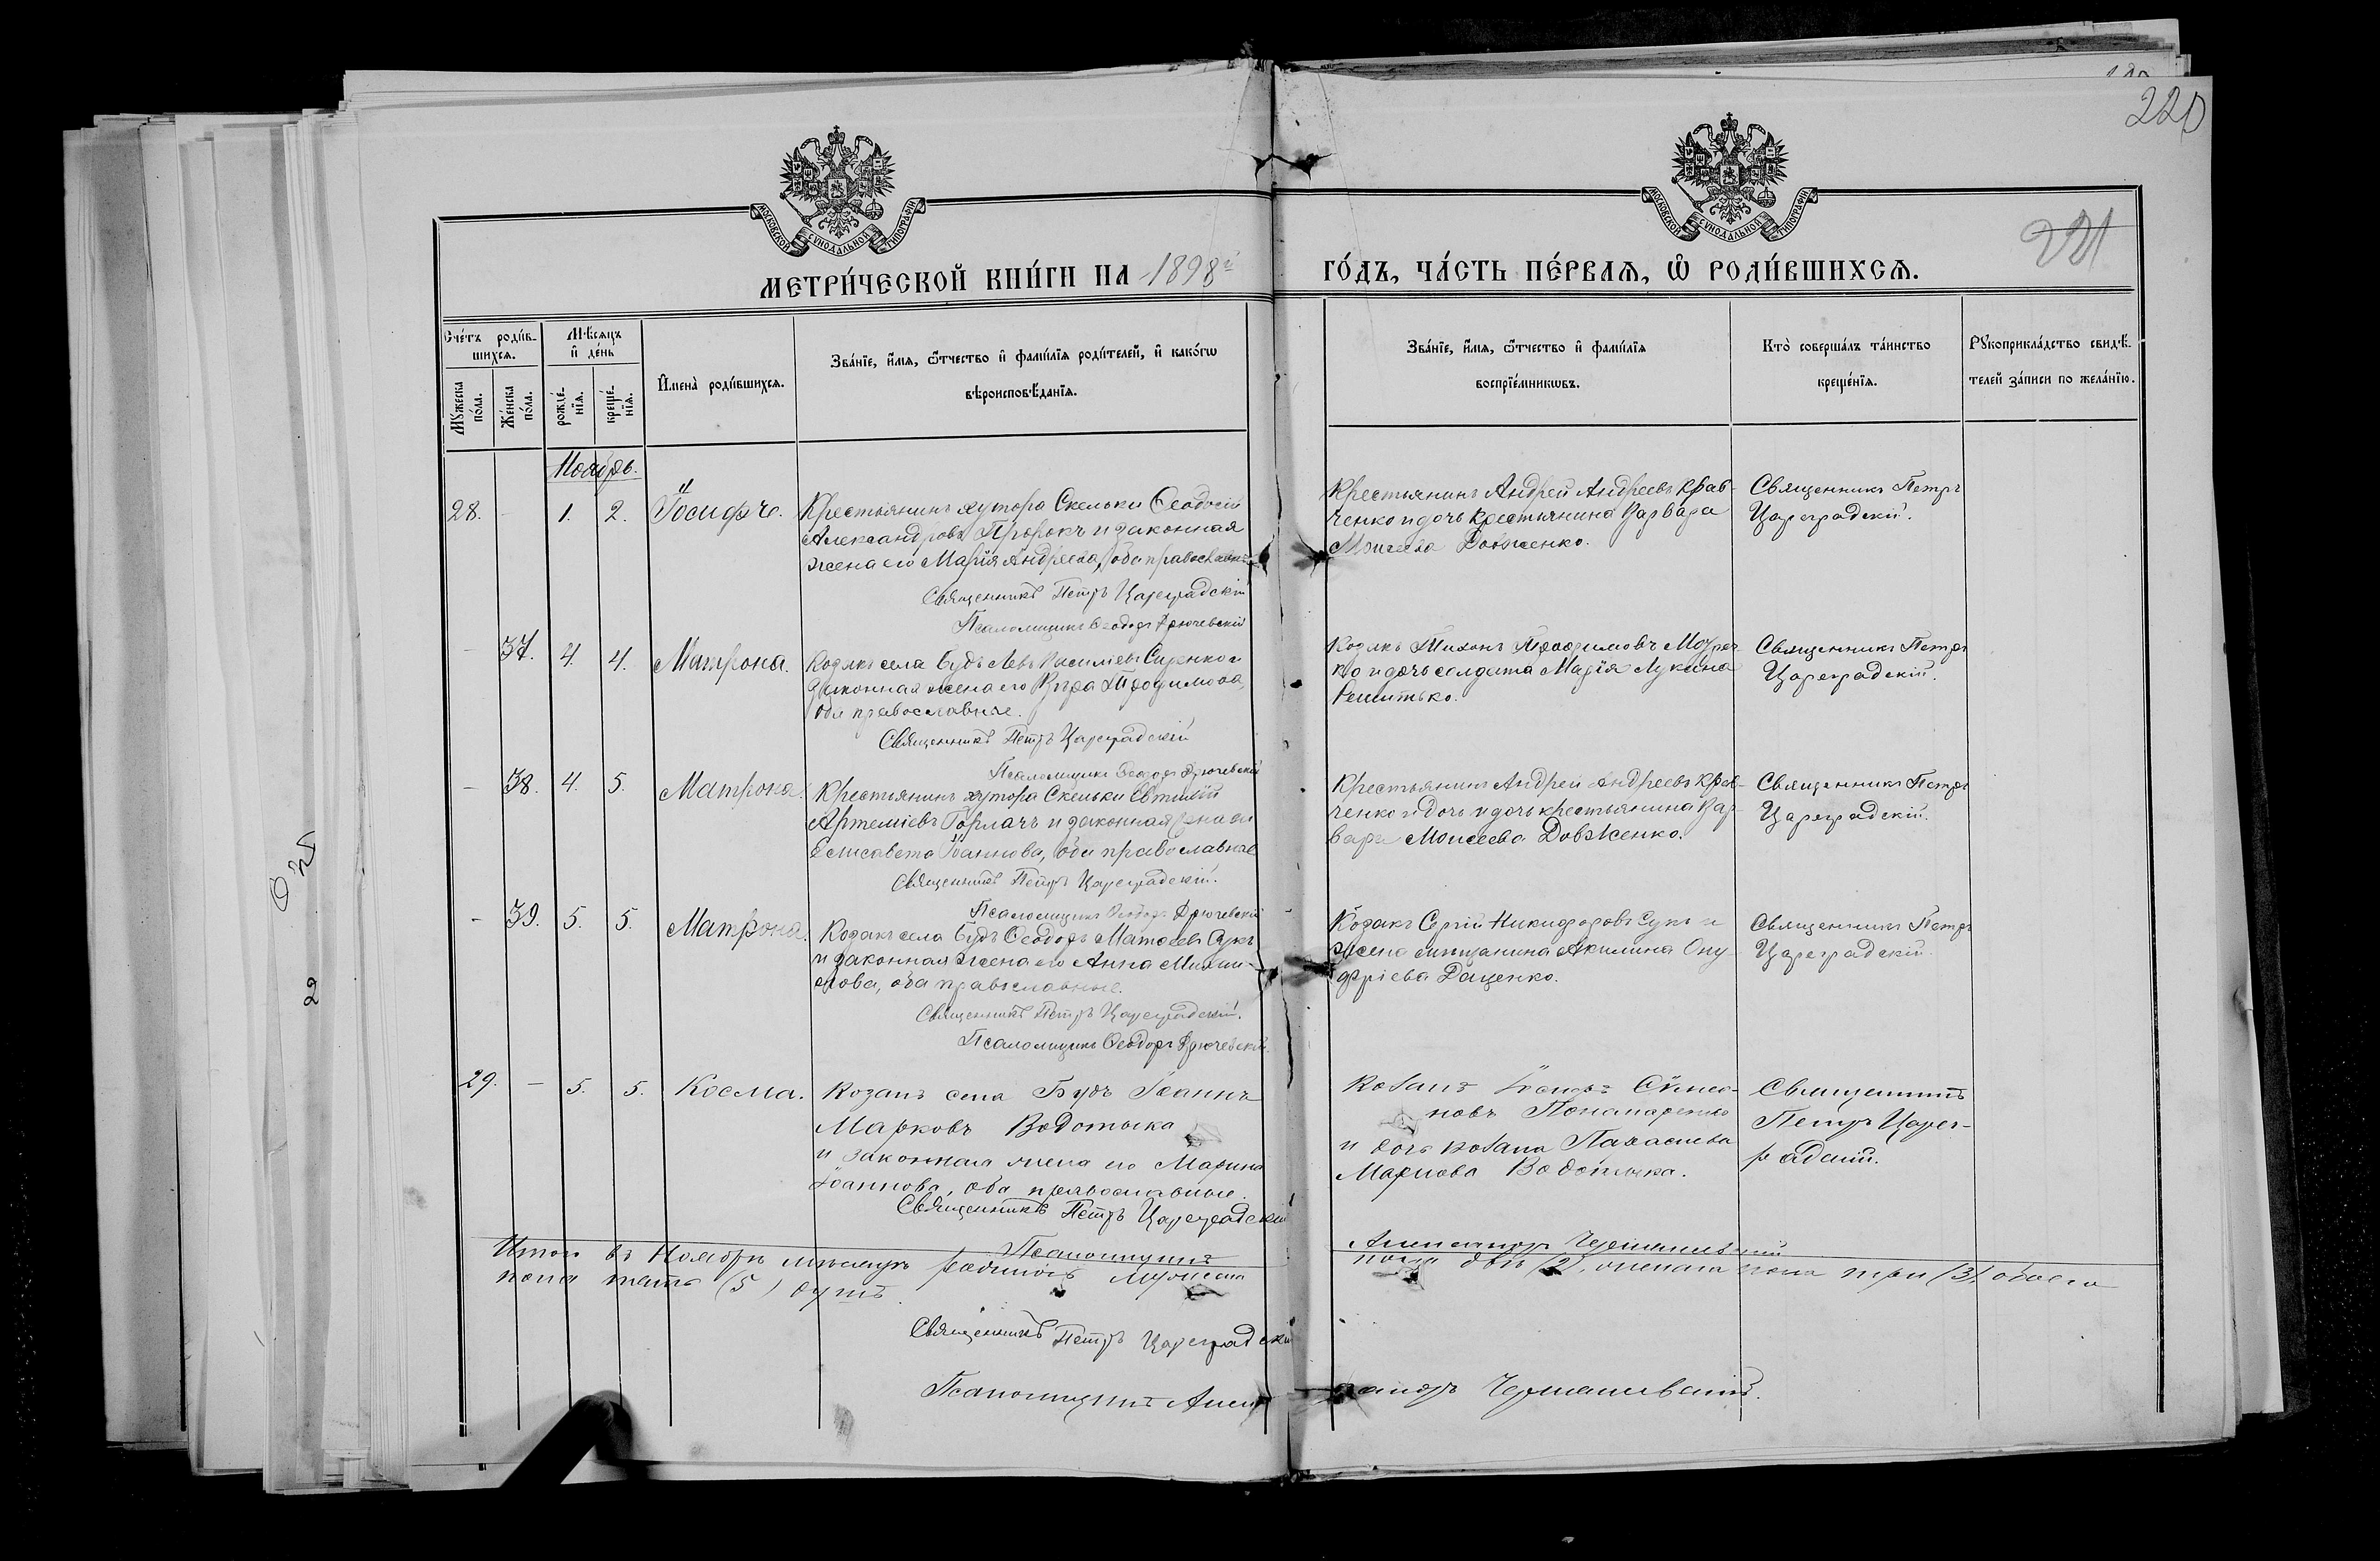 220
221
МОСКОВСКОЙ СѴНОДАЛЬНОЙ ТИПОГРАФІИ
МОСКОВСКОЙ СѴНОДАЛЬНОЙ ТИПОГРАФІИ
МЕТРИ́ЧЕСКОЙ КНИ́ГИ НА 1898й ГО́ДЪ, ЧА́СТЬ ПЕ́РВАѦ, Ѡ҆ РОДИ́ВШИХСѦ.
Сче́тъ роди́в-
шихсѧ.
Мꙋ́жеска
по́ла.
Же́нска
по́ла.
Мѣ́сѧцъ
и҆ де́нь
рожде́-
нїѧ.
креще́-
нїѧ.
И҆мена̀ роди́вшихсѧ.
Зва́нїе, и҆́мѧ, ѻ҆́тчество и҆ фами́лїѧ роди́телей, и҆ како́гѡ
вѣроисповѣ́данїѧ.
Зва́нїе, и҆́мѧ, ѻ҆́тчество и҆ фами́лїѧ
воспрїе́мникѡвъ.
Кто̀ соверша́лъ та́инство
креще́нїѧ.
Рꙋкоприкла́дство свидѣ́-
телей за́писи по жела́нїю.
Ноябрь.
28. - 1. 2. Іосифъ.
Крестьянинъ хутора Скельки Ѳеодосій
Александровъ Пророкъ и законная
жена его Марія Андреева, оба православные
Священникъ Петръ Цареградскій
Псаломщикъ Ѳеодоръ Крючевскій
Крестьянинъ Андрей Андреевъ Крав-
ченко и дочь крестьянина Варвара
Моисеева Довженко.
Священникъ Петръ
Цареградскій.
- 37. 4. 4. Матрона.
Козакъ села Будъ Левъ Василіевъ Сиренко и
законная жена его Вѣра Трофимова,
оба православные.
Священникъ Петръ Цареградскій
Псаломщикъ Ѳеодоръ Крючевскій
Козакъ Тихонъ Трофимовъ
ко и дочь солдата Марія Лукина
Решитько.
Священникъ Петръ
Цареградскій.
- 38. 4. 5. Матрона.
Крестьянинъ хутора Скельки Евтихій
Артеміевъ Горлачъ и законная жена его
Елисавета Іоаннова, оба православные
Священникъ Петръ Цареградскій.
Псаломщикъ Ѳеодоръ Крючевскій
Крестьянинъ Андрей Андреевъ Крав-
ченко и дочь и дочь крестьянина Вар-
вара Моисеева Довженко.
Священникъ Петръ
Цареградскій.
- 39. 5. 5. Матрона.
Козакъ села Будъ Ѳеодоръ Матѳеевъ Сукъ
и законная жена его Анна Михаи-
лова, оба православные.
Священникъ Петръ Цареградскій.
Псаломщикъ Ѳеодоръ Крючевскій.
Козакъ Сергій Никифоровъ Сукъ и
жена мѣщанина Акилина Ону
фріева Даценко.
Священникъ Петръ
Цареградскій.
29. - 5. 5. Косма.
Козакъ села Будъ Іоаннъ
Марковъ Водотыка
и законная жена его Марина
Іоаннова, оба православные.
Священникъ Петръ Цареградскій
Псаломщикъ Александръ
Козакъ Сѵмео-
новъ Пономаренко
и дочь козака Параскева
Маркова Водотыка.
Священникъ
Петръ Царег-
радскій.
Итого въ Ноябрѣ мѣсяцѣ родилось мужеска пола два (2), женска пола три (3), обоего
пола пять (5) душъ.
Священникъ Петръ Цареградскій
Псаломщикъ Александръ